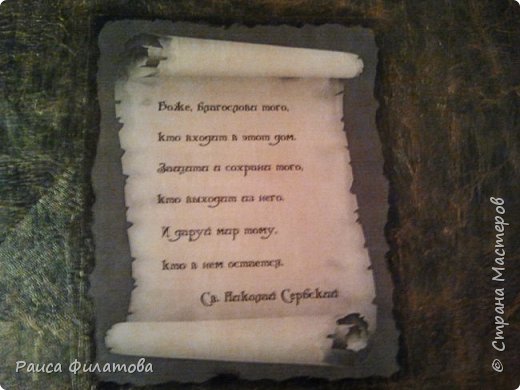 Боже, благослови того,
кто входит в этот дом.
Защити и сохрани того,
кто выходит из него.
И даруй мир тому,
кто в нем остается.
Св. Николай Сербский
Раиса Филатова
© Страна Мастеров